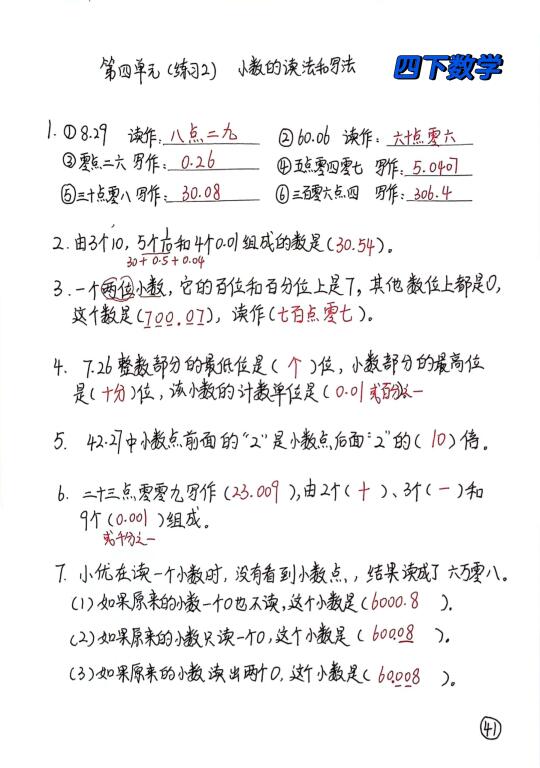 第四单元(练习2) 小数的读法和写法 四下数学
1. ①8.29 读作: 八点二九 ②60.06 读作: 六十点零六
③零点二六 写作: 0.26 ④五点零四零七 写作: 5.0407
⑤三十点零八 写作: 30.08 ⑥三百零六点四 写作: 306.4
2. 由3个10, 5个1/10和4个0.01组成的数是(30.54)。
30+0.5+0.04
3. 一个两位小数, 它的百位和百分位上是7, 其他数位上都是0,
这个数是(700.07), 读作(七百点零七)。
4. 7.26整数部分的最低位是(个)位, 小数部分的最高位
是(十分)位, 该小数的计数单位是(0.01或百分之一)
5. 42.27中小数点前面的“2”是小数点后面“2”的(10)倍。
6. 二十三点零零九写作(23.009), 由2个(十)、3个(一)和
9个(0.001)组成。
或千分之一
7. 小优在读一个小数时, 没有看到小数点, 结果读成了六万零八。
(1)如果原来的小数一个0也不读, 这个小数是(6000.8)。
(2)如果原来的小数只读一个0, 这个小数是(600.08)。
(3)如果原来的小数读出两个0, 这个小数是(60.008)。
41